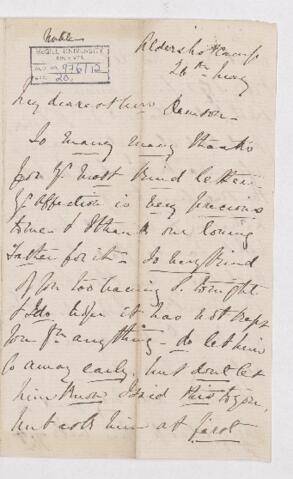 McGILL UNIVERSITY
ARCHIVES
ACC. NO. 976/12
REF. 20.
Aldershot Camp
26th
My dearest Mrs Dawson -
So many many thanks
for yr. most kind letter -
Yr affection is very precious
to me & I thank our loving
Father for it - So very kind
of you too having tonight
& I do hope it has not
you for anything - do let him
go away early, but don't let
him know I said this to you,
but ask him at first